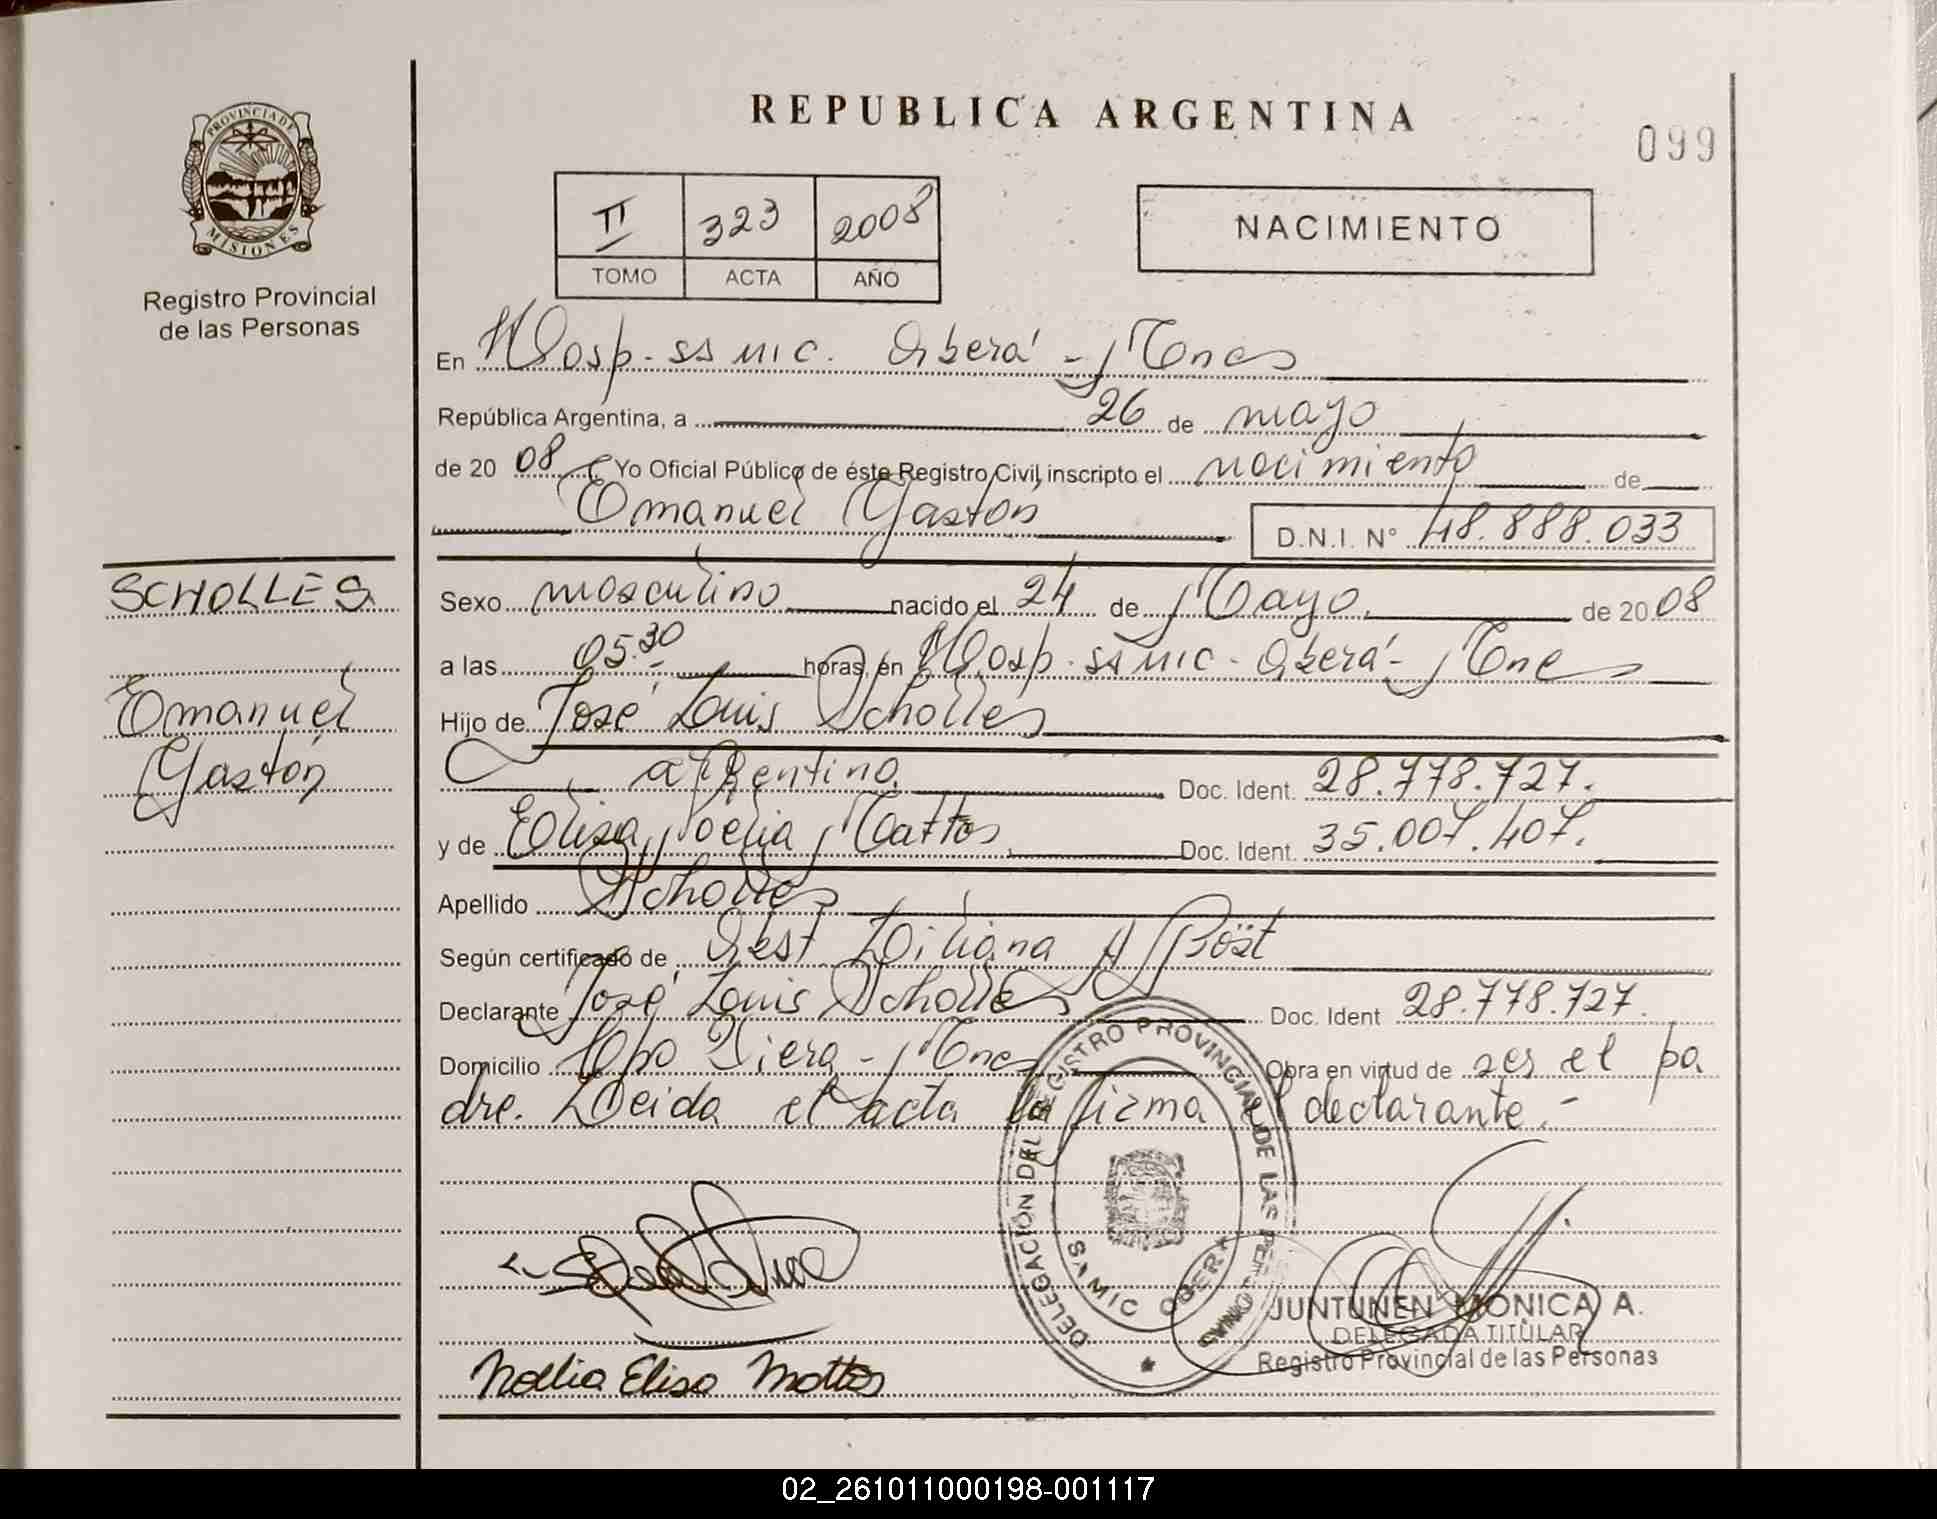 REPUBLICA ARGENTINA
099
PROVINCIA DE
MISIONES
Registro Provincial
de las Personas
II 323 2008
TOMO ACTA AÑO
NACIMIENTO
En Hosp. SAMIC. Oberá - Mnes
República Argentina, a 26 de mayo
de 20 08 Yo Oficial Público de éste Registro Civil, inscripto el nacimiento de
Emanuel Gastón D.N.I. N° 48.888.033
SCHOLLES
Emanuel
Gastón
Sexo masculino nacido el 24 de Mayo de 20 08
a las 05.30 horas, en Hosp. SAMIC - Oberá - Mnes
Hijo de José Luis Scholles
argentino Doc. Ident. 28.778.727.
y de Elisa Noelia Mattos Doc. Ident. 35.007.407.
Apellido Scholles
Según certificado de Obst. Liliana A. Böst
Declarante José Luis Scholles Doc. Ident 28.778.727.
Domicilio Viera - Mnes Obra en virtud de ser el pa
dre. Leida el acta la firma el declarante.-
DELEGACIÓN DEL REGISTRO PROVINCIAL DE LAS PERSONAS
SAMIC OBERA
JUNTUNEN MONICA A.
DELEGADA TITULAR
Registro Provincial de las Personas
Noelia Elisa Mattos
02_261011000198-001117